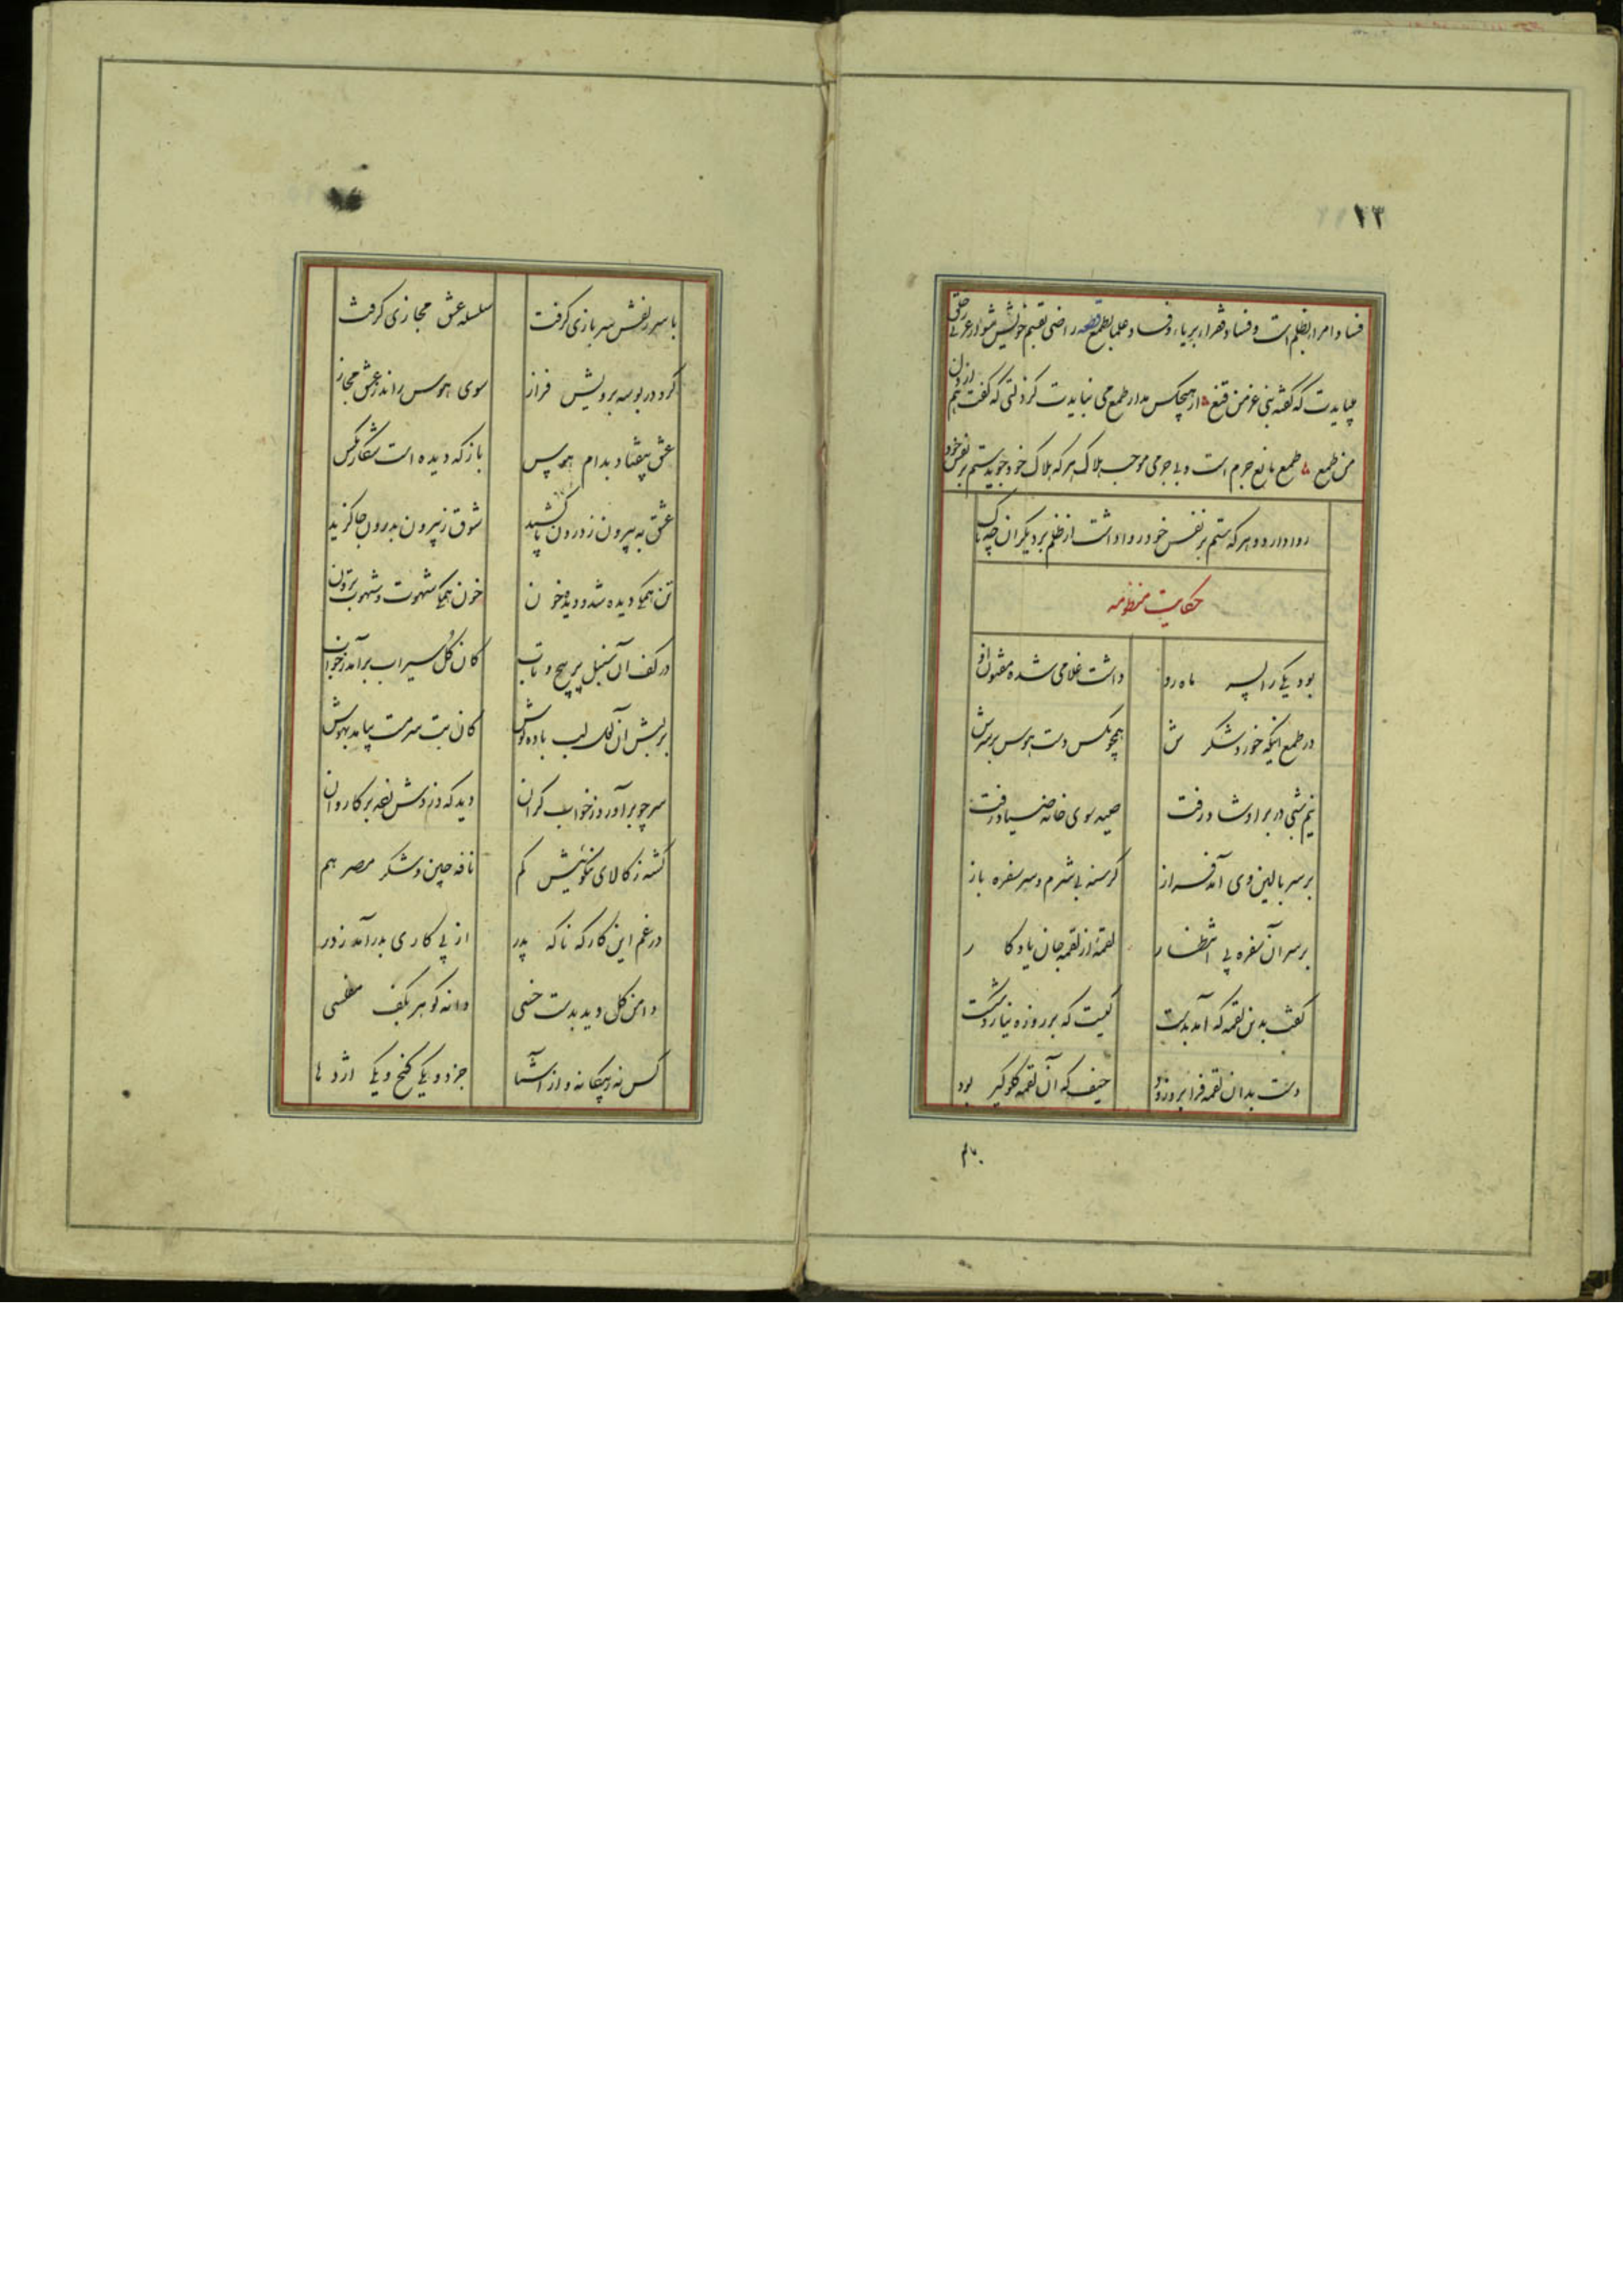 ۱۳
فساد امرا بظلم است و فساد فقرا بریا و فساد علما بطمع قطعه راضی بقسم خویش شو ار عزتی
بایدت که گفته نبی عز من قنع از هیچکس مدار طمع می نبایدت کز ذلتی که گفت هم
من طمع طمع مانع جرم است و بی جرمی موجب هلاک هر که هلاک خود جوید ستم بر نفس خود
روا دارد و هر که ستم بر نفس خود روا داشت از ظلم بر دیگران چه باک
حکایت منظومه
بود یکی را پسر ماه رو داشت غلامی شده مفتون او
در طمع اینکه خورد شکرش همچو مگس دست هوس بر سرش
نیم شبی در بر او شاد رفت صید سوی خانه صیاد رفت
بر سر بالین وی آمد فراز گرسنه بی شرم و سر سفره باز
بر سر آن سفره پی انتظار لقمه از لقمه جان یادگار
گفت بدین لقمه که آمد بدست کیست که بر روزه نیارد شکست
دست بدان لقمه فرا برد زود حیف که آن لقمه گلوگیر بود
با سر زلفش سر بازی گرفت سلسله عشق مجازی گرفت
کرد در بوسه برویش فراز سوی هوس راند ز عشق مجاز
عشق بیفتاد بدام هوس باز که دیده است شکار مگس
عشق به بیرون ز درون پا کشید شوق ز بیرون بدرون جا گزید
تن همگی دیده شد و دیده خون خون همگی شهوت و شهوت برون
در کف آن سنبل پر پیچ و تاب کان گل سیراب برآمد ز خواب
بر لبش آن لب باده نوش کان بت سرمست بیامد بهوش
سر چو برآورد ز خواب گران دید که دزدش زده بر کاروان
گشته ز کالای نکوئیش کم نافه چین و شکر مصر هم
در غم این کار که ناگه پدر از پی کاری بدر آمد ز در
دامن گل دید بدست خسی دانه گوهر بکف مفلسی
کس نه ز بیگانه و از آشنا جز دو یکی گنج و یکی اژدها